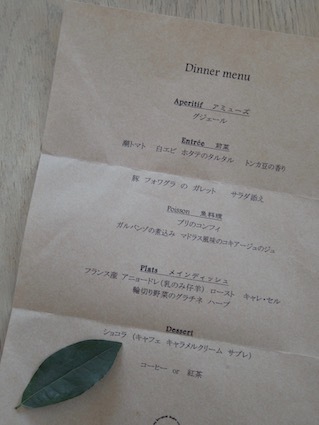 Dinner menu
Aperitif アミューズ
グジュール
Entrée 前菜
潮トマト 白エビ ホタテのタルタル トンカ豆の香り
豚 フォワグラ の ガレット サラダ添え
Poisson 魚料理
ブリのコンフィ
ガルバンゾの煮込み マドラス風味のコキアージュのジュ
Plats メインディッシュ
フランス産 アニョードレ(乳のみ仔羊) ロースト キャレ・セル
輪切り野菜のグラチネ ハーブ
Dessert
ショコラ (キャフェ キャラメルクリーム サブレ)
コーヒー or 紅茶